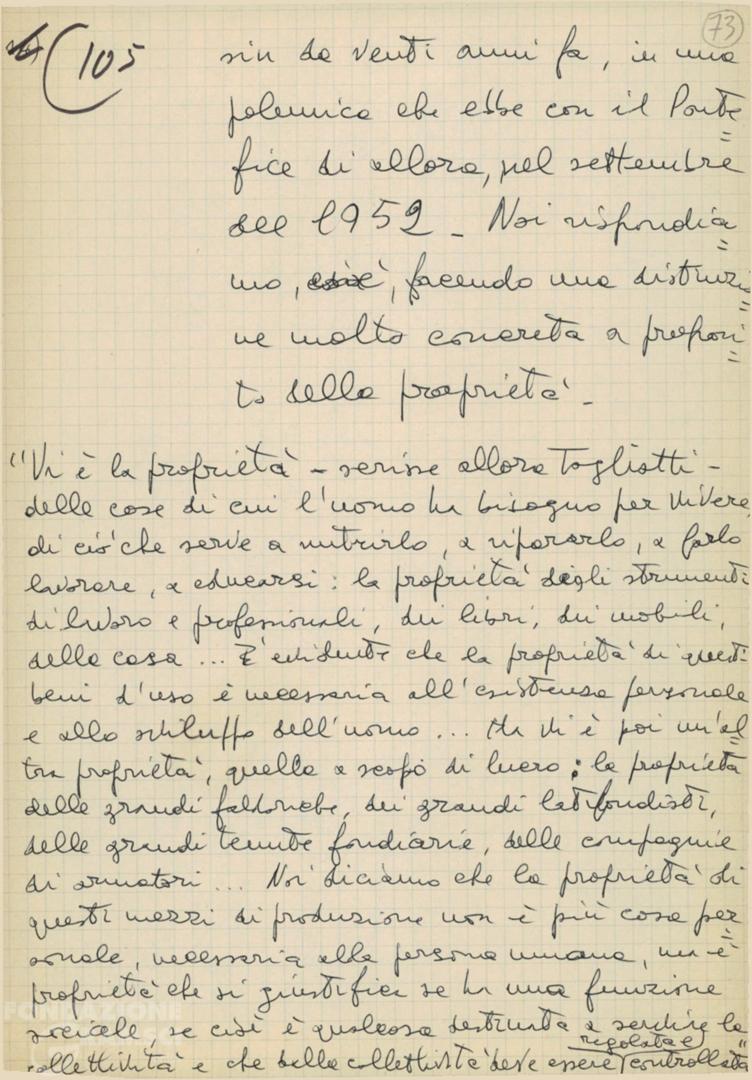 73
105
sin da venti anni fa, in una
polemica che ebbe con il Ponte
fice di allora, nel settembre
del 1952 - Noi rispondia
mo, cioè, facendo una distinzio
ne molto concreta a proposi
to della proprietà -
"Vi è la proprietà - scrisse allora Togliatti -
delle cose di cui l'uomo ha bisogno per vivere,
di ciò che serve a nutrirlo, a ripararlo, a farlo
lavorare, a educarsi: la proprietà degli strumenti
di lavoro e professionali, dei libri, dei mobili,
della casa ... È evidente che la proprietà di questi
beni d'uso è necessaria all'esistenza personale
e allo sviluppo dell'uomo ... Ma vi è poi un'al
tra proprietà, quella a scopo di lucro: la proprietà
delle grandi fabbriche, dei grandi latifondisti,
delle grandi tenute fondiarie, delle compagnie
di armatori ... Noi diciamo che la proprietà di
questi mezzi di produzione non è più cosa per
sonale, necessaria alla persona umana, ma è
proprietà che si giustifica se ha una funzione
sociale, se cioè è qualcosa destinata a servire la
collettività e che dalla collettività deve essere regolata e controllata"
FONDAZIONE